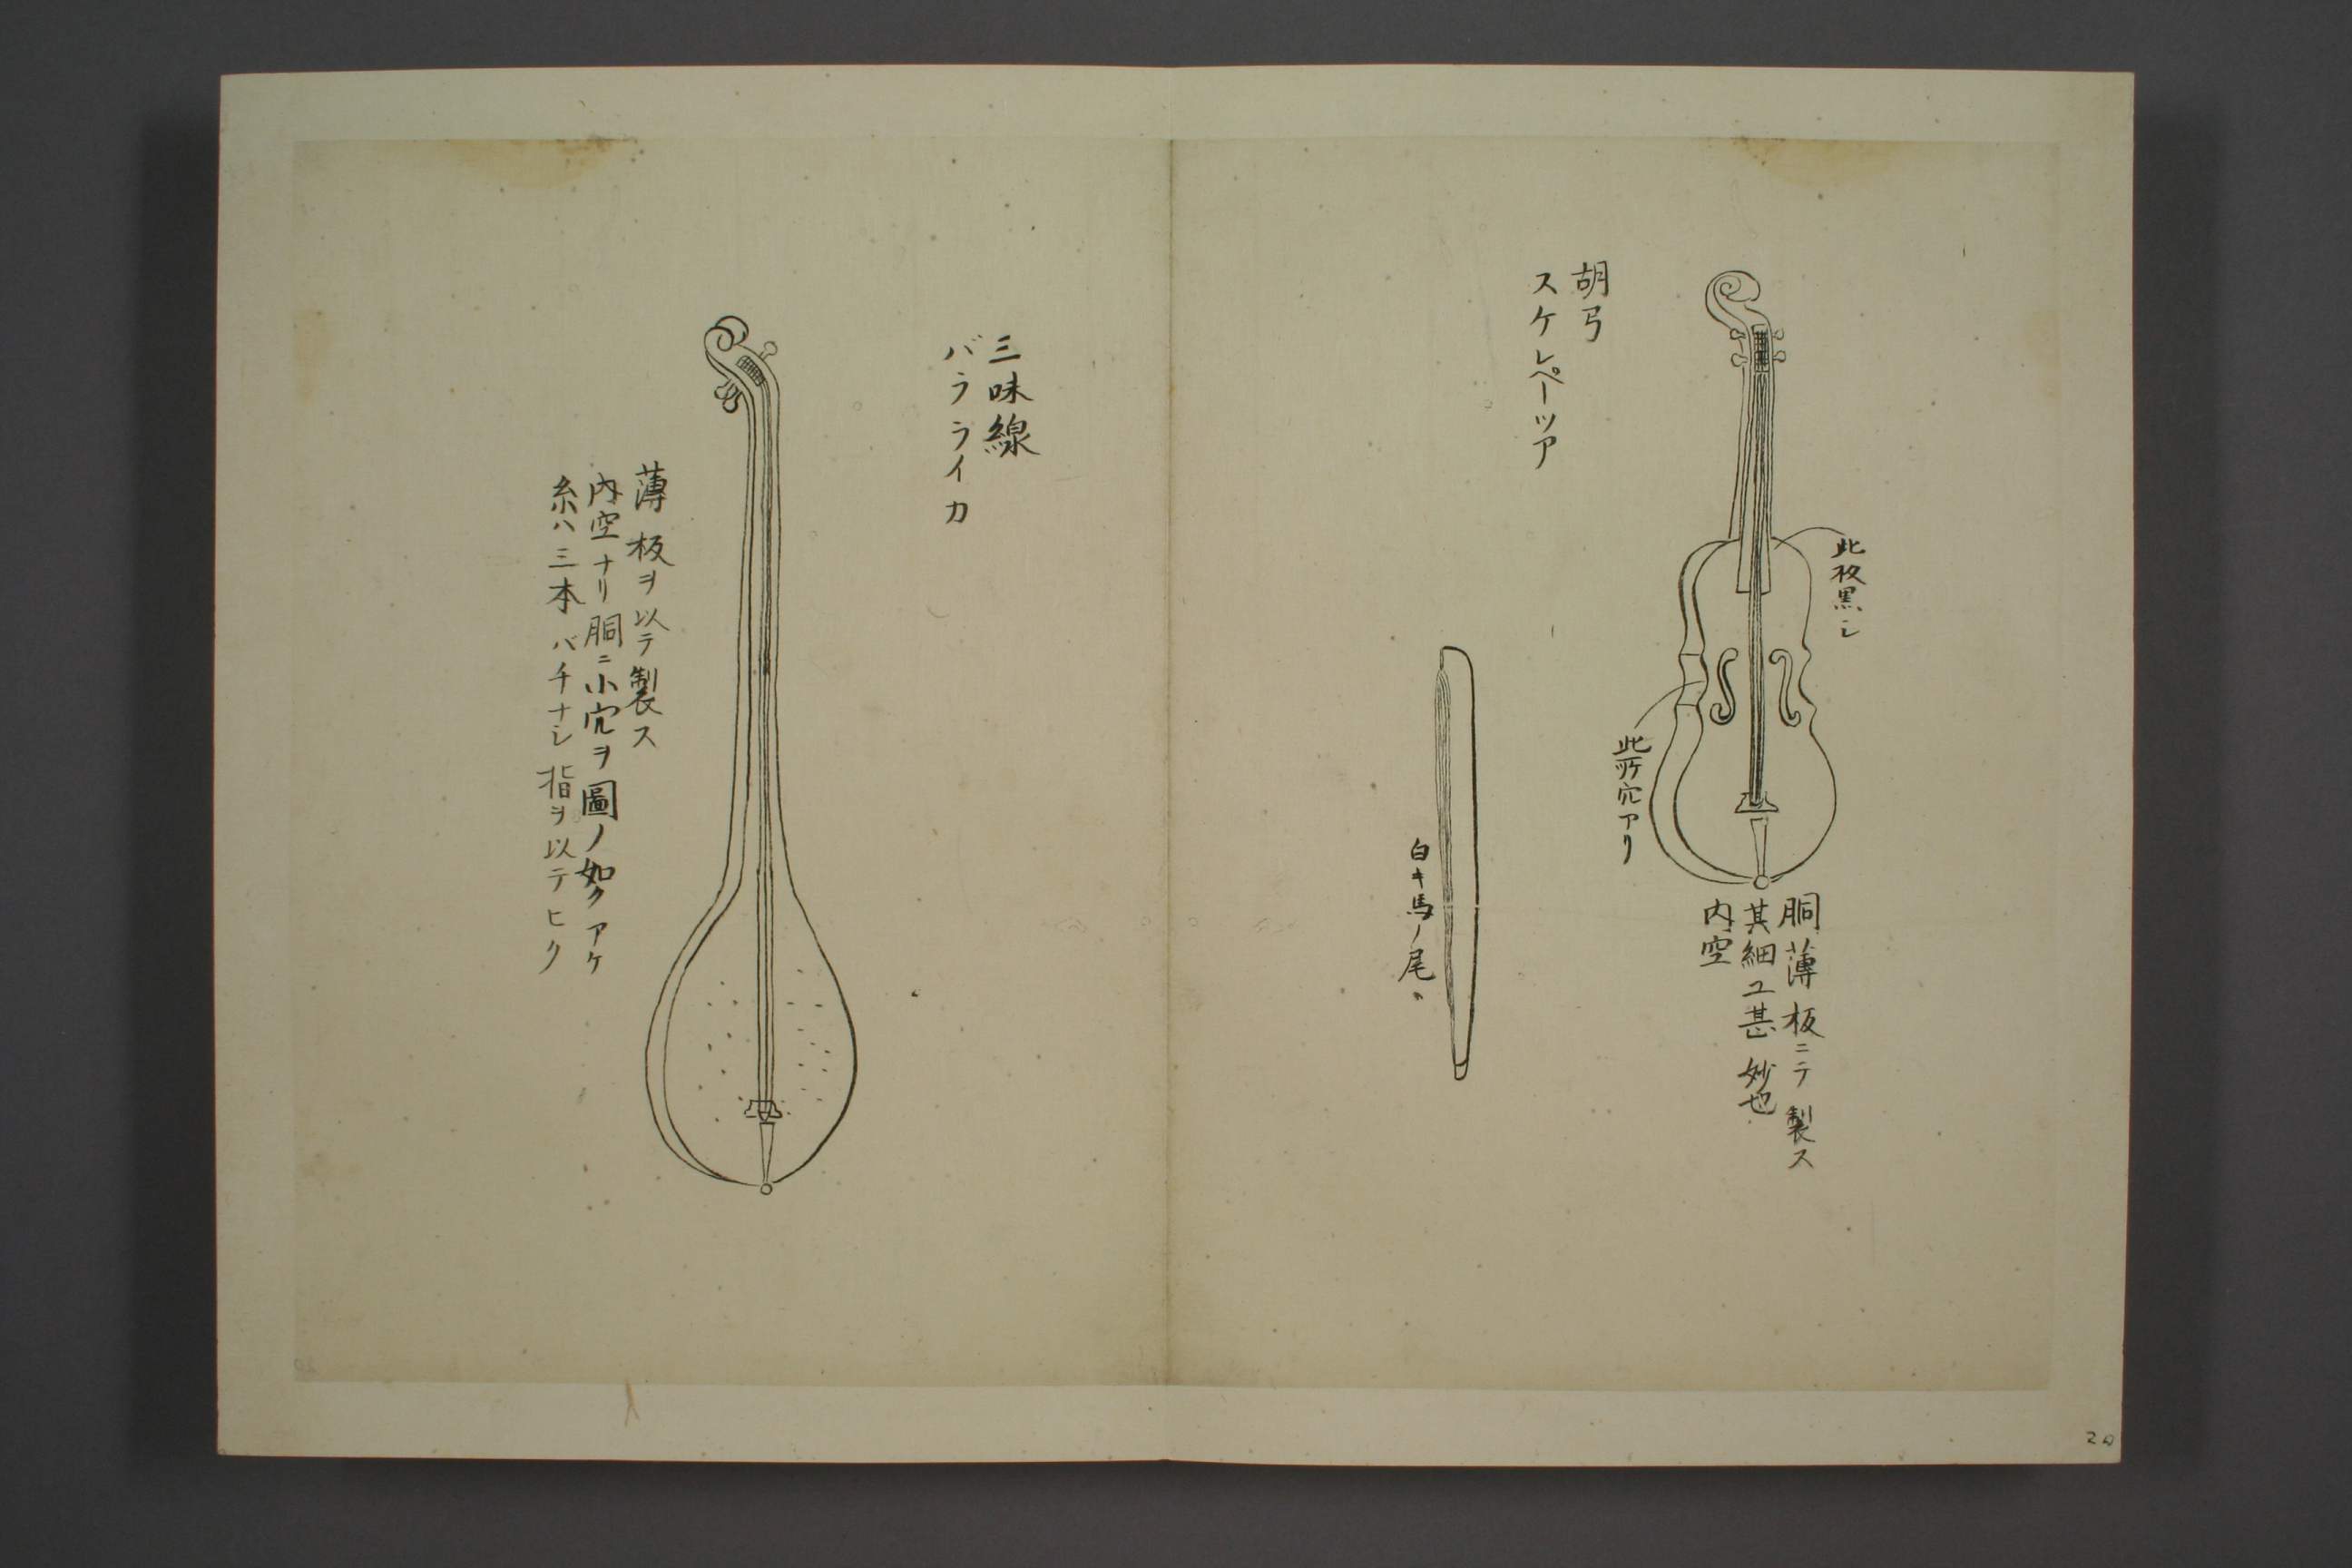 胡弓
スケレペーツア
此板黒シ
此所穴アリ
胴薄板ニテ製ス
其細工甚妙也
内空
白キ馬ノ尾
三味線
バラライカ
薄板ヲ以テ製ス
内空ナリ胴ニ小穴ヲ圖ノ如クアケ
糸ハ三本バチナシ指ヲ以テヒク
20